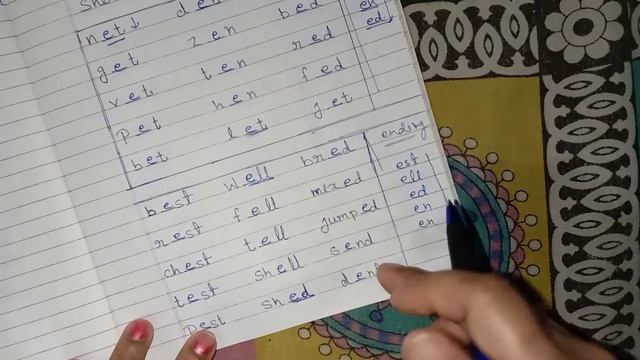 She
net↓ den en
get zen bed ed
vet ten red
pet hen fed
bet let jet
ending
best well bred est
rest fell mixed ell
chest tell jumped ed
test shell send en
pest shed den en